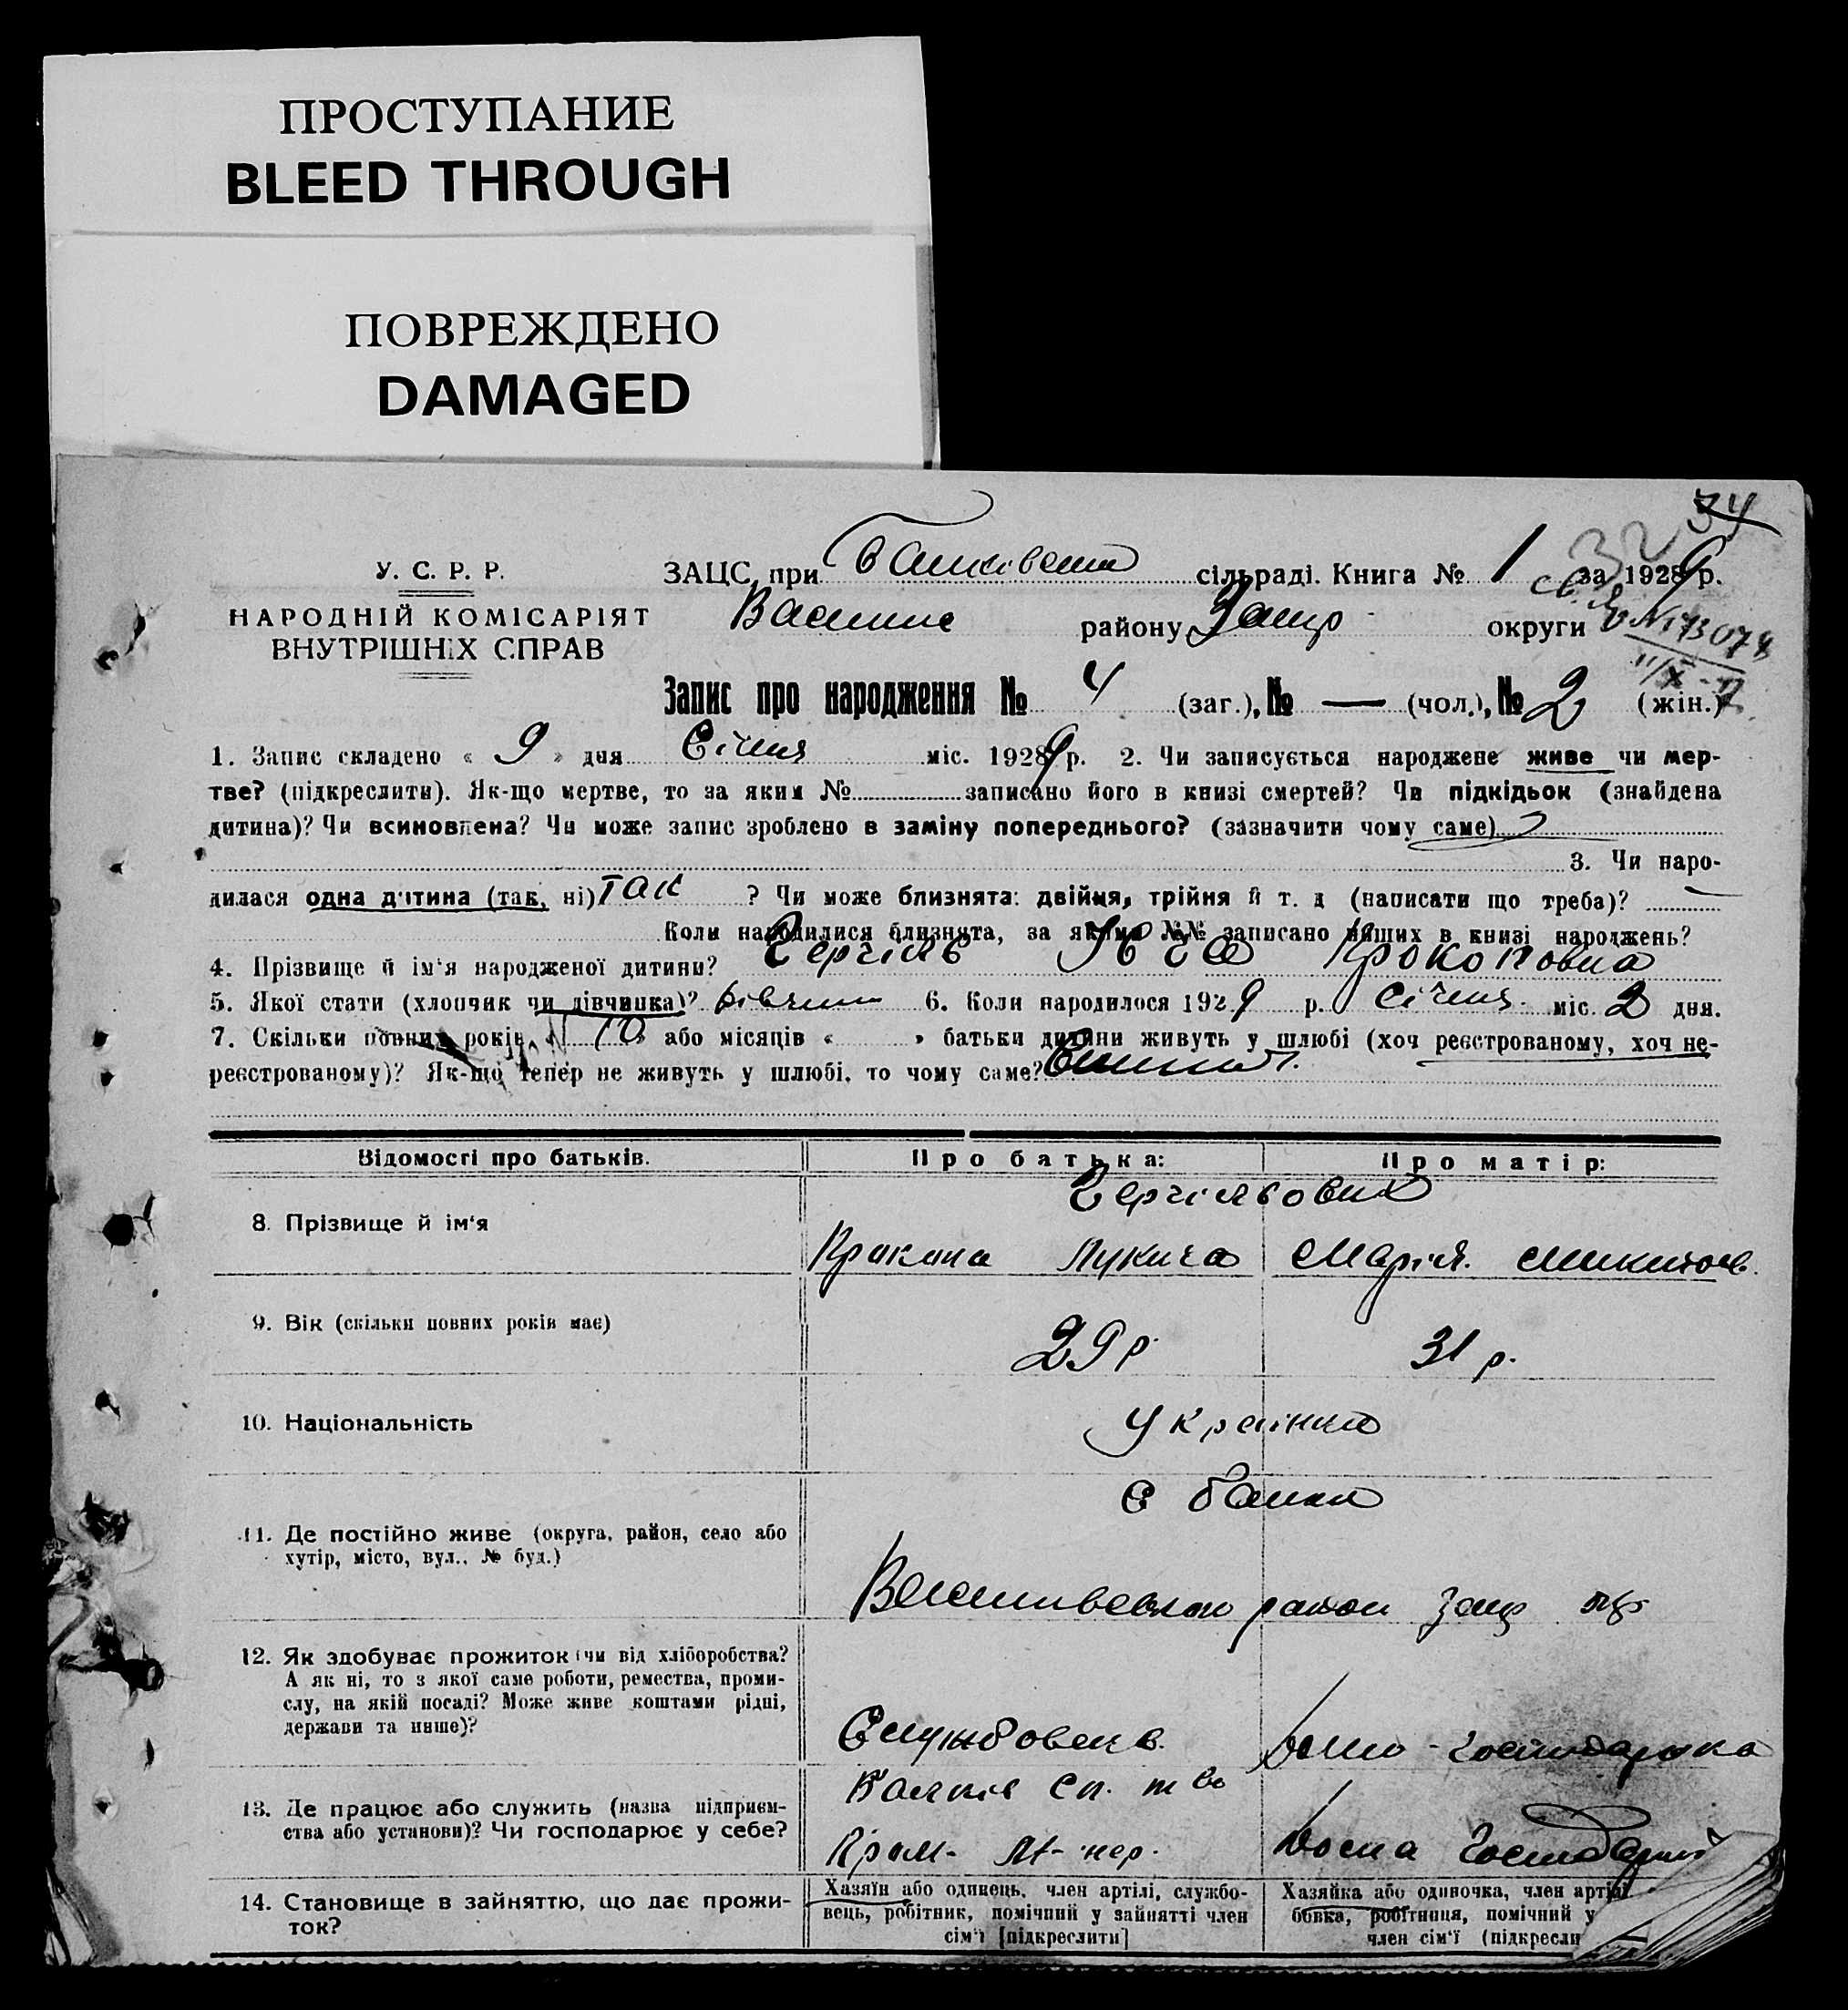 ПРОСТУПАНИЕ
BLEED THROUGH
ПОВРЕЖДЕНО
DAMAGED
34
32
У. С. Р. Р.
НАРОДНІЙ КОМІСАРІЯТ
ВНУТРІШНІХ СПРАВ
ЗАЦС при сільраді. Книга № 1 за 1929 р.
району Запор округи
Запис про народження № 4 (заг.), № — (чол.), № 2 (жін.)
1. Запис складено « 9 » дня Січня міс. 1929 р. 2. Чи записується народжене живе чи мер-
тве? (підкреслити). Як-що мертве, то за яким № записано його в книзі смертей? Чи підкідьок (знайдена
дитина)? Чи всиновлена? Чи може запис зроблено в заміну попереднього? (зазначити чому саме)
3. Чи наро-
дилася одна дитина (так, ні) так ? Чи може близнята: двійня, трійня й т. д (написати що треба)? —
Коли народилися близнята, за якими №№ записано инших в книзі народжень?
4. Прізвище й ім'я народженої дитини? Прокоповна
5. Якої статі (хлопчик чи дівчинка)? дівчина 6. Коли народилося 1929 р. Січня міс. 2 дня.
7. Скільки повних років 10 або місяців « » батьки дитини живуть у шлюбі (хоч реєстрованому, хоч не-
реєстрованому)? Як-що тепер не живуть у шлюбі, то чому саме?
Відомості про батьків. Про батька: Про матір:
8. Прізвище й ім'я
Прокопа Лукича Марія Микитов.
9. Вік (скільки повних років має) 29 р 31 р.
10. Національність Українка
с Балки
11. Де постійно живе (округа, район, село або
хутір, місто, вул., № буд.)
район Запор
12. Як здобуває прожиток (чи від хліборобства?
А як ні, то з якої саме роботи, ремества, проми-
слу, на якій посаді? Може живе коштами рідні,
держави та инше)?
Службовець Домо-господарка
Балків Сп. т во
13. Де працює або служить (назва підприєм-
ства або установи)? Чи господарює у себе?
14. Становище в зайняттю, що дає прожи-
ток?
Хазяїн або одинець, член артілі, службо-
вець, робітник, помічний у зайнятті член
сім'ї [підкреслити]
Хазяйка або одиночка, член артілі
бовка, робітниця, помічний у
член сім'ї (підкресли